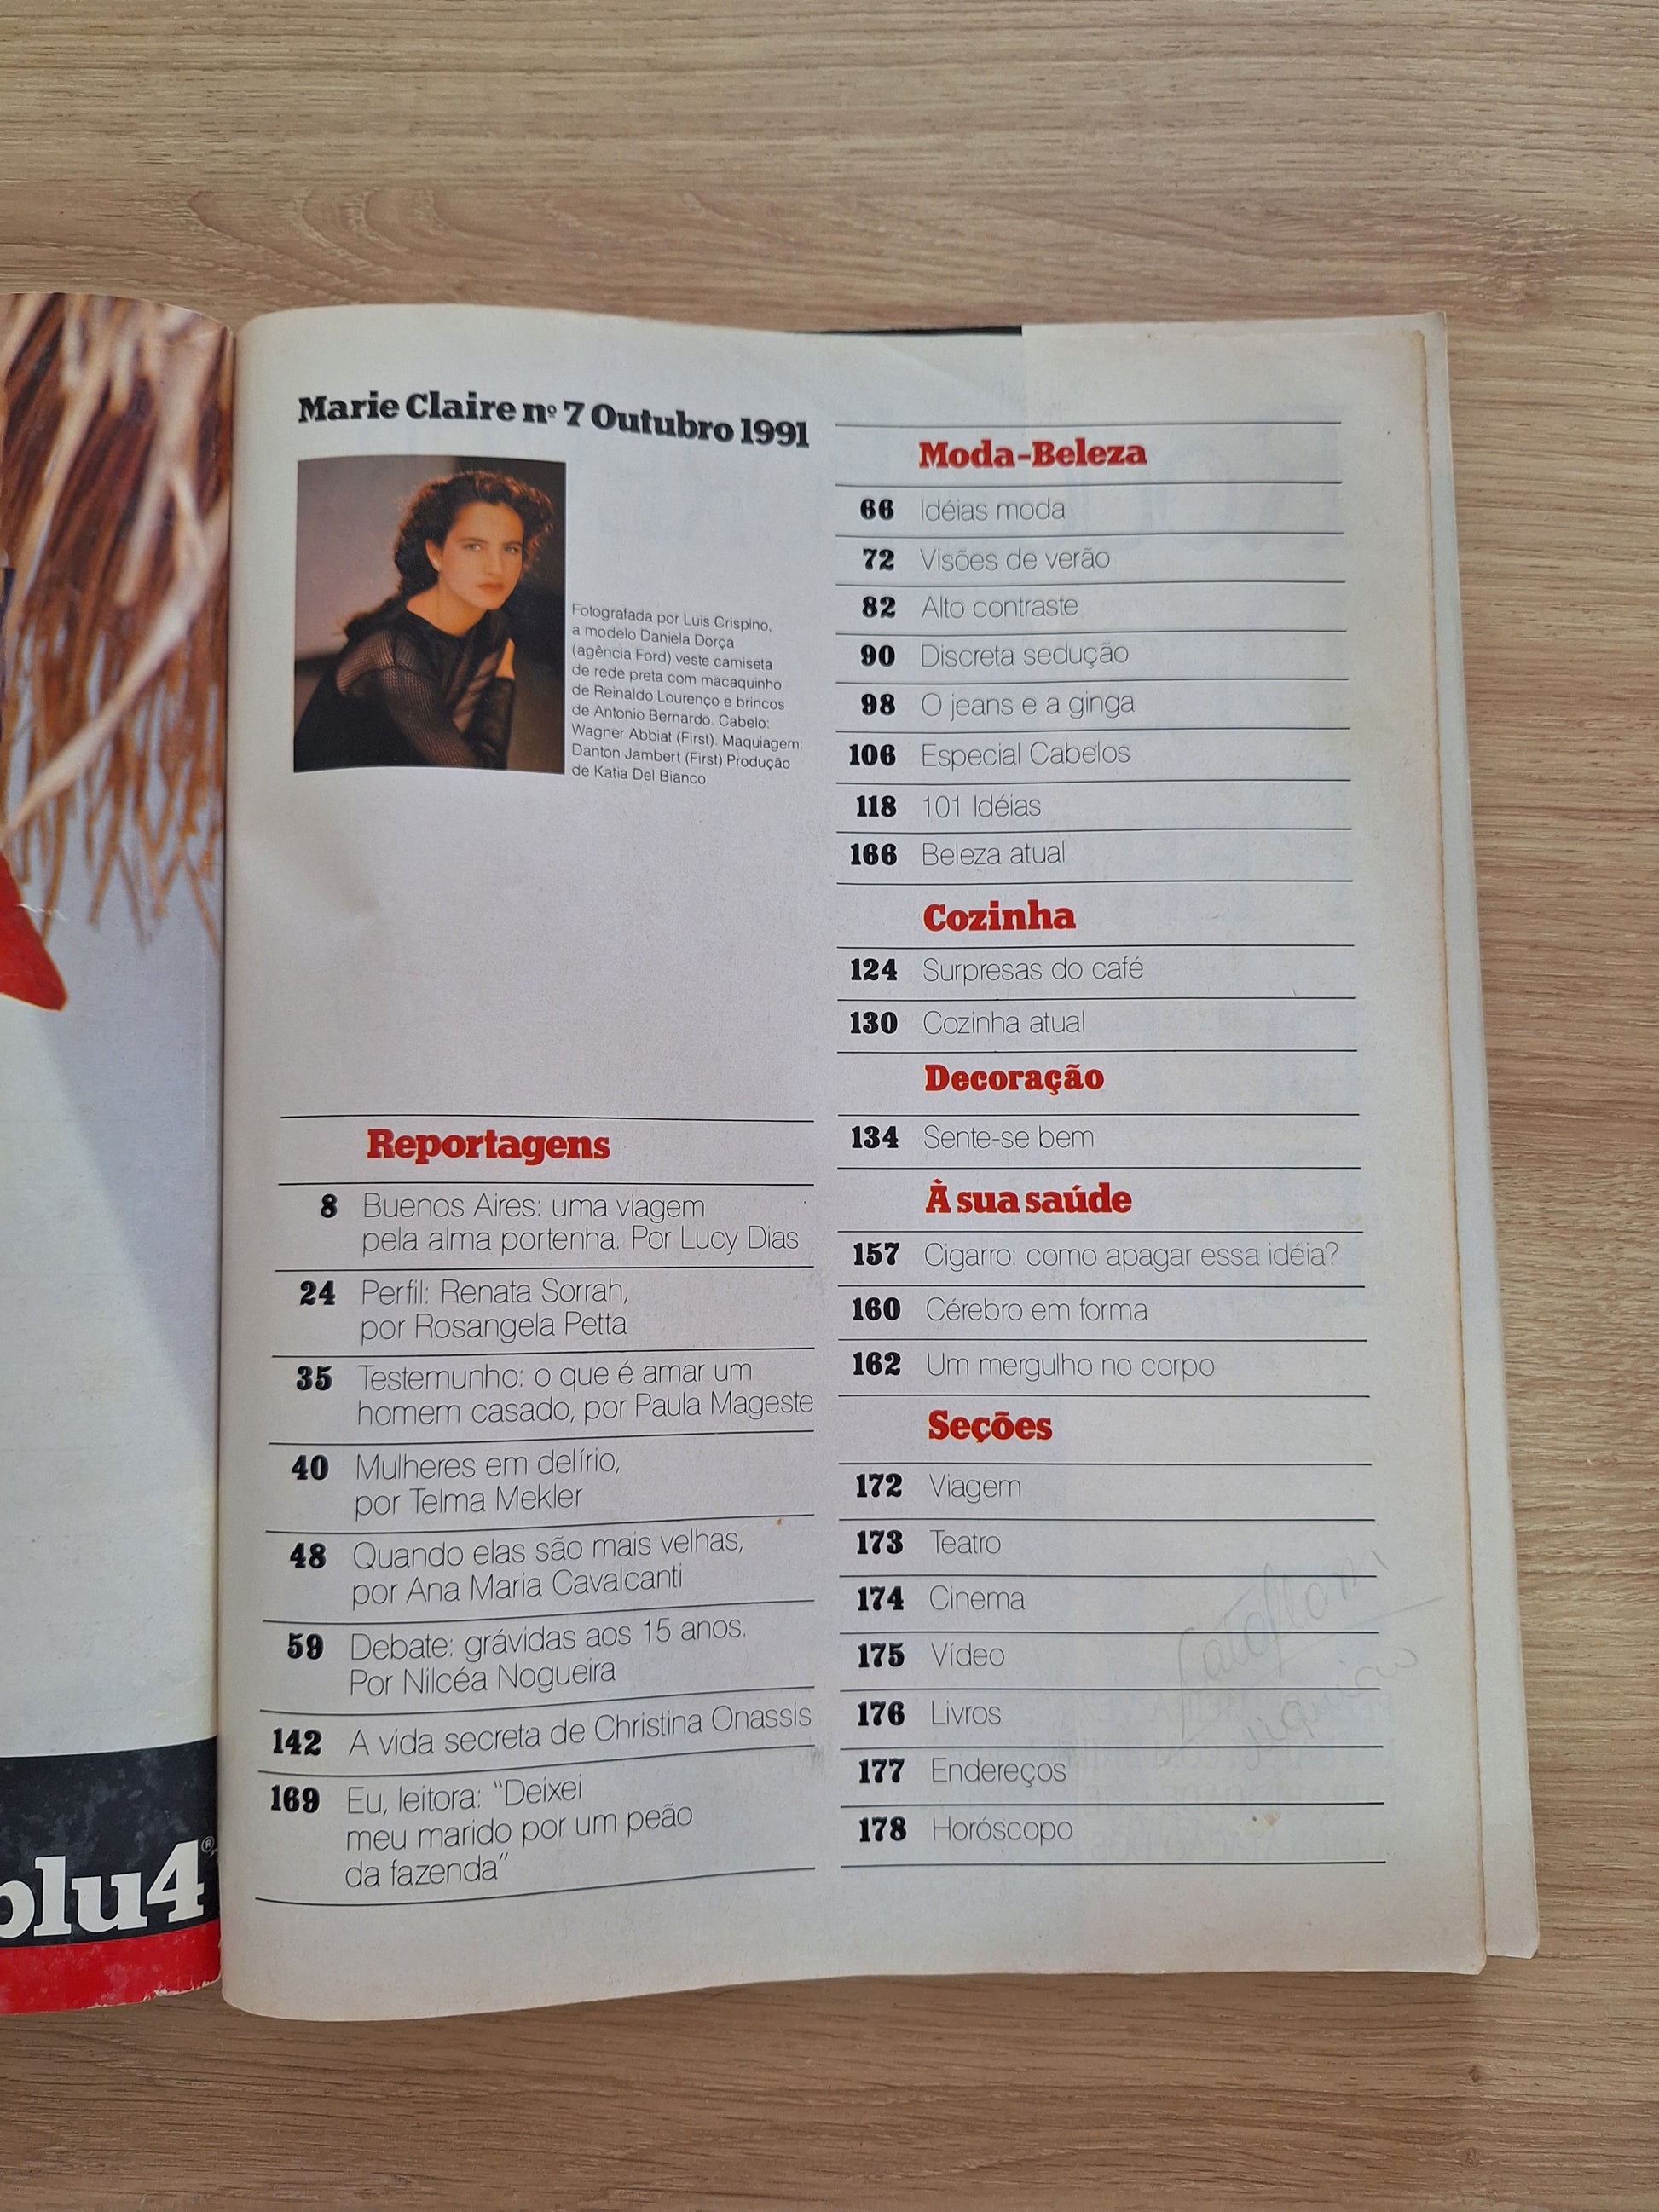 Marie Claire nº 7 Outubro 1991
Fotografada por Luis Crispino,
a modelo Daniela Dorça
(agência Ford) veste camiseta
de rede preta com macaquinho
de Reinaldo Lourenço e brincos
de Antonio Bernardo. Cabelo:
Wagner Abbiat (First). Maquiagem:
Danton Jambert (First) Produção
de Katia Del Bianco.
Reportagens
8 Buenos Aires: uma viagem
pela alma portenha. Por Lucy Dias
24 Perfil: Renata Sorrah,
por Rosangela Petta
35 Testemunho: o que é amar um
homem casado, por Paula Mageste
40 Mulheres em delírio,
por Telma Mekler
48 Quando elas são mais velhas,
por Ana Maria Cavalcanti
59 Debate: grávidas aos 15 anos.
Por Nilcéa Nogueira
142 A vida secreta de Christina Onassis
169 Eu, leitora: "Deixei
meu marido por um peão
da fazenda"
Moda-Beleza
66 Idéias moda
72 Visões de verão
82 Alto contraste
90 Discreta sedução
98 O jeans e a ginga
106 Especial Cabelos
118 101 Idéias
166 Beleza atual
Cozinha
124 Surpresas do café
130 Cozinha atual
Decoração
134 Sente-se bem
À sua saúde
157 Cigarro: como apagar essa idéia?
160 Cérebro em forma
162 Um mergulho no corpo
Seções
172 Viagem
173 Teatro
174 Cinema
175 Vídeo
176 Livros
177 Endereços
178 Horóscopo
plu4®